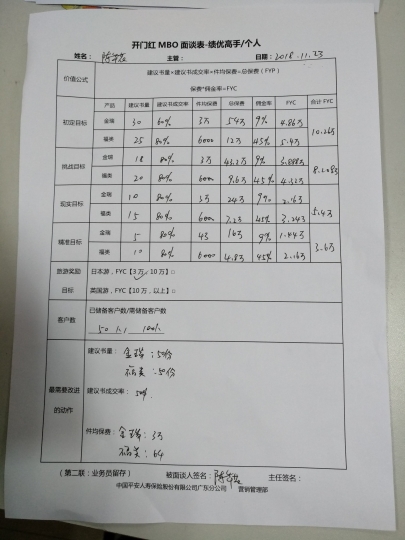 开门红 MBO 面谈表-绩优高手/个人
姓名： 主管： 日期：2018.11.23
价值公式
建议书量×建议书成交率×件均保费=总保费（FYP）
保费*佣金率=FYC
产品 建议书量 建议书成交率 件均保费 总保费 佣金率 FYC 合计 FYC
初定目标 金瑞 30 60% 3万 54万 9% 4.86万 10.26万
福类 25 80% 6000 12万 45% 5.4万
挑战目标 金瑞 18 80% 3万 43.2万 9% 3.888万 8.208万
福类 20 80% 6000 9.6万 45% 4.32万
现实目标 金瑞 10 80% 3万 24万 9% 2.16万 5.4万
福类 15 80% 6000 7.2万 45% 3.24万
精准目标 金瑞 5 80% 4万 16万 9% 1.44万 3.6万
福类 10 80% 6000 4.8万 45% 2.16万
旅游奖励 日本游，FYC【3万/10万】□
目标 英国游，FYC【10万，以上】□
客户数 已储备客户数/需储备客户数
50人 / 100人
最需要改进的动作
建议书量： 金瑞：50份
福类：50份
建议书成交率： 50%
件均保费： 金瑞：3万
福类：6千
（第二联：业务员留存） 被面谈人签名： 主任签名：
中国平安人寿保险股份有限公司广东分公司 营销管理部